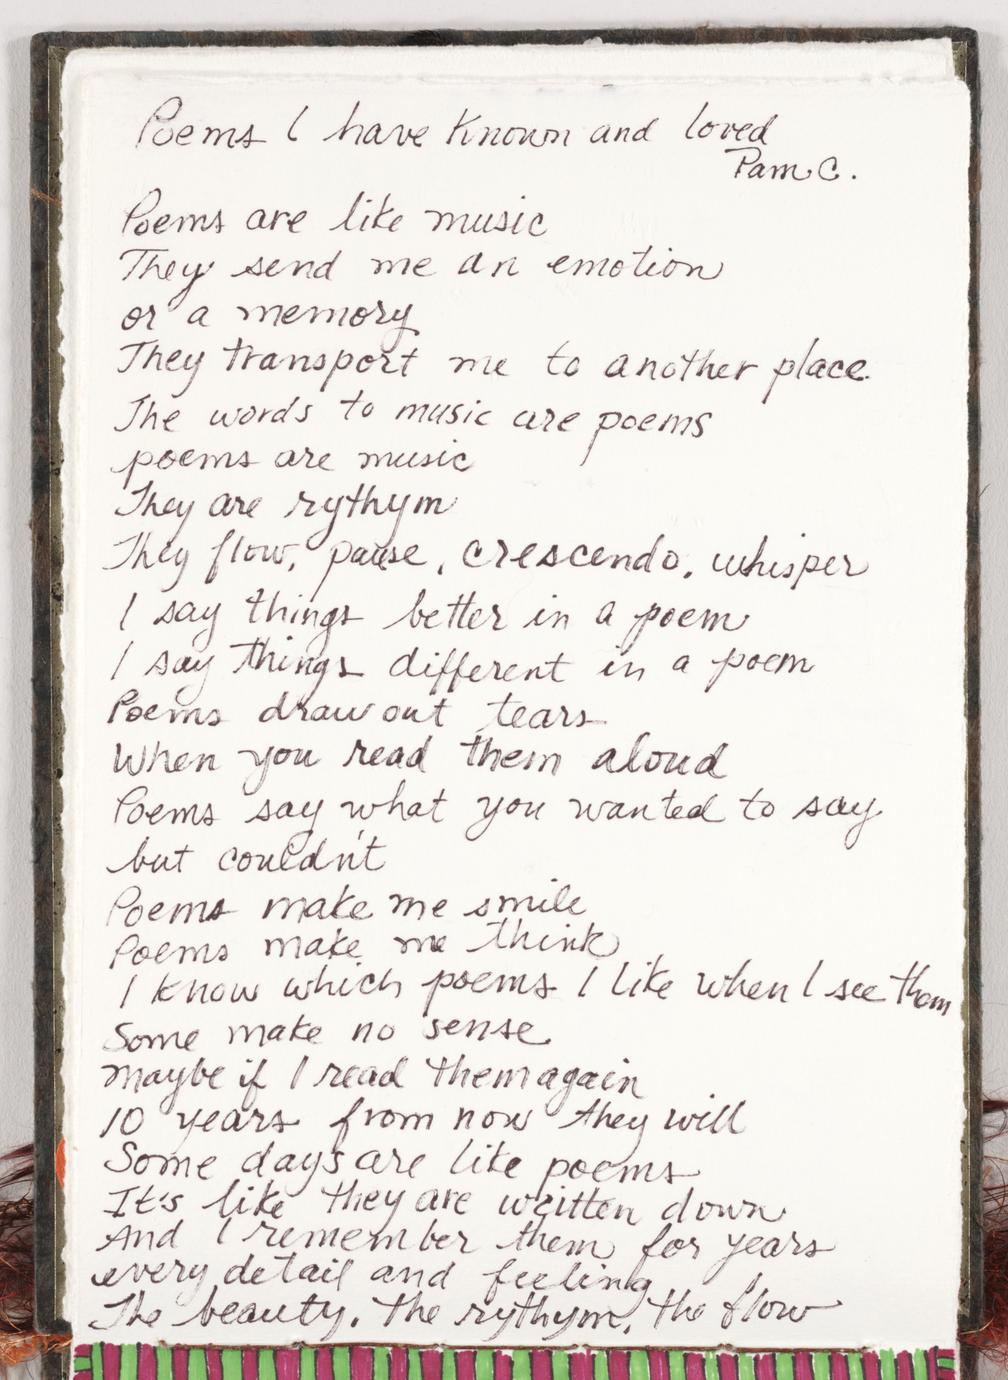 Poems I have known and loved
Pam C.
Poems are like music
They send me an emotion
or a memory
They transport me to another place.
The words to music are poems
poems are music
They are rythym
They flow, pause, crescendo, whisper
I say things better in a poem
I say things different in a poem
Poems draw out tears
When you read them aloud
Poems say what you wanted to say
but couldn't
Poems make me smile
Poems make me think
I know which poems I like when I see them
Some make no sense
maybe if I read them again
10 years from now they will
Some days are like poems
It's like they are written down
And I remember them for years
every detail and feeling
The beauty, the rythym, the flow